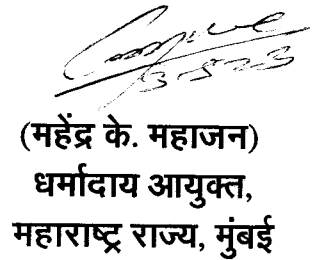 3-5-23
(महेंद्र के. महाजन)
धर्मादाय आयुक्त,
महाराष्ट्र राज्य, मुंबई